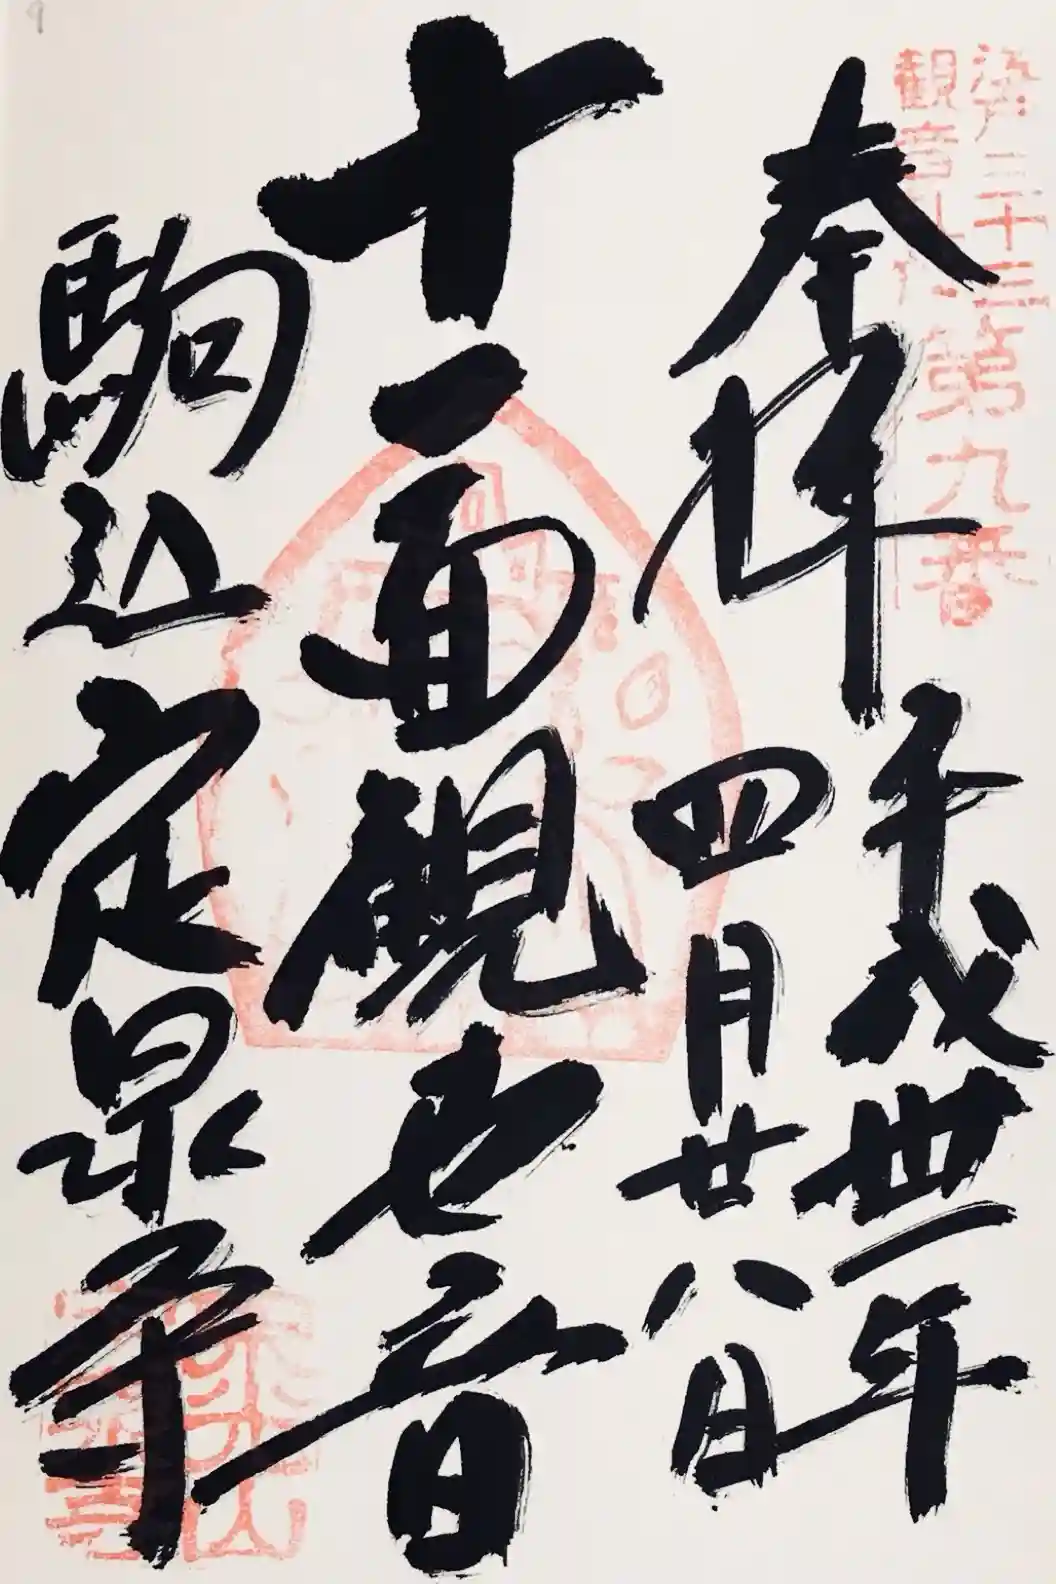 9
江戸三十三
観音札所
第九番
奉拝
平成卅一年
四月廿八日
十一面観世音
駒込定泉寺